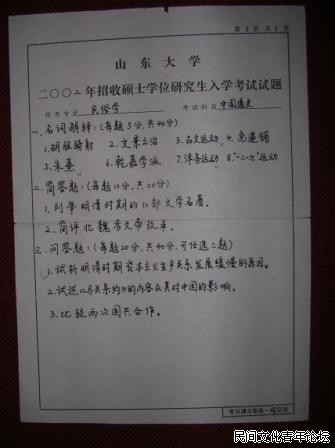 第 1 页 共 1 页
山东大学
二〇〇二年招收硕士学位研究生入学考试试题
报考专业 民俗学 考试科目 中国通史
一、名词解释:(每题5分,共40分)
1.胡服骑射 2.文景之治 3.古文运动 4.急递铺
5.朱熹 6.乾嘉学派 7.洋务运动 8."一二·九"运动
二、简答题:(每题10分,共20分)
1.列举明清时期的10部文学名著。
2.简评北魏孝文帝改革。
三、问答题:(每题20分,共40分,可任选二题)
1.试析明清时期资本主义生产关系发展缓慢的原因。
2.试述《马关条约》的内容及其对中国的影响。
3.比较两次国共合作。
考后请与答卷一起交回
民间文化青年论坛